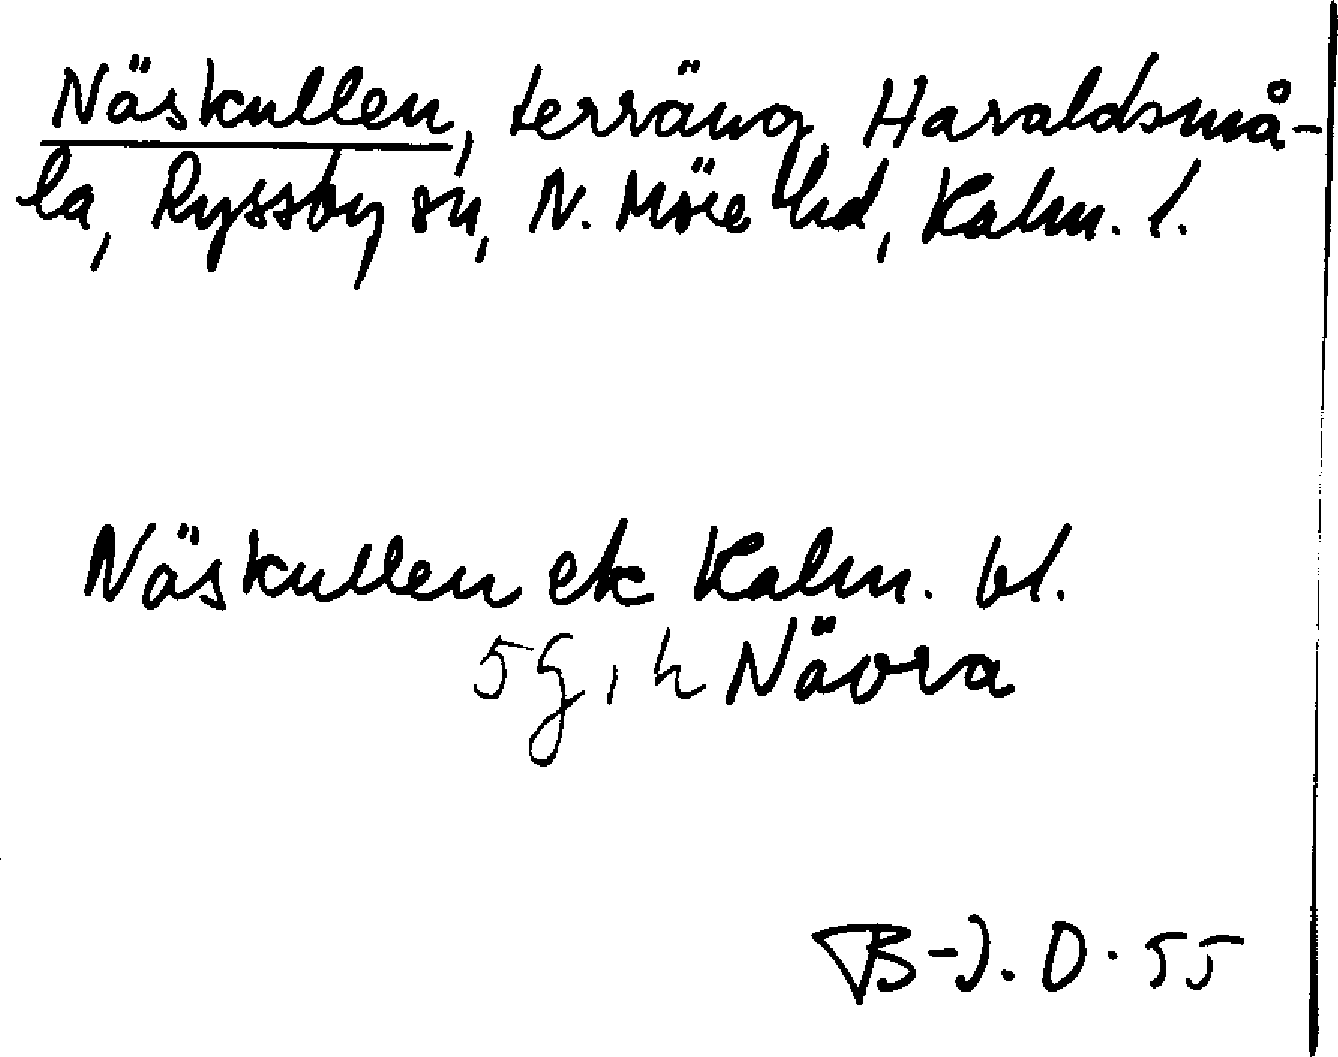 Näskullen, terräng, Haraldsmå-
la, Ryssby sn, N. Möre hd, Kalm. l.
Näskullen ek Kalm. bl.
5g, h Nävra
B-J. O. 55